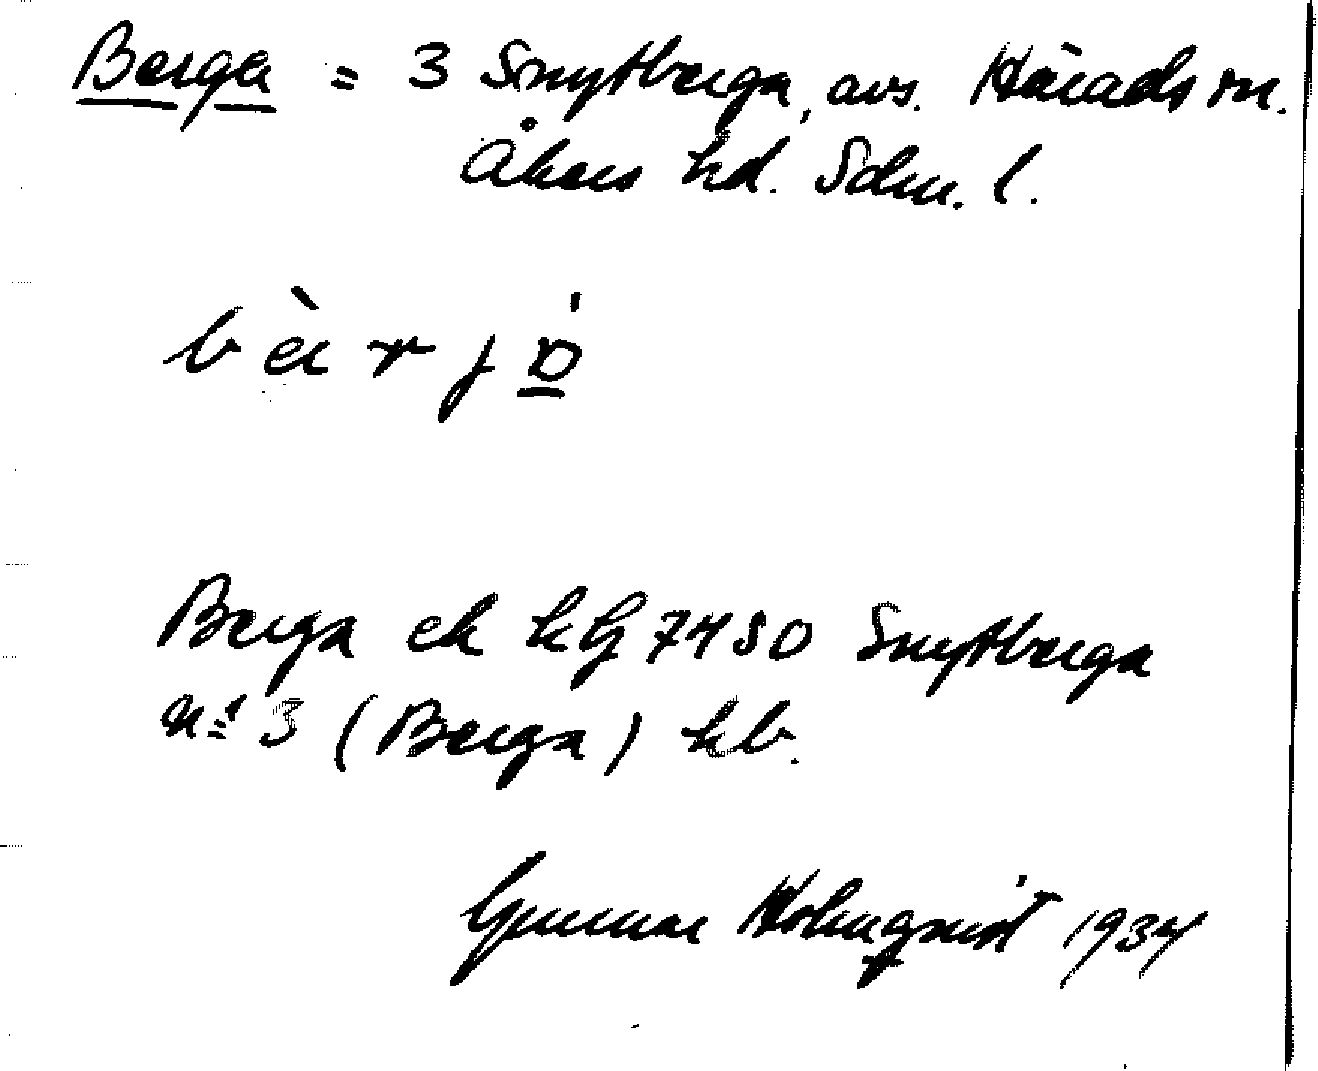 Berga = 3 Snytberga, avs. Härads sn.
Åkers hd. Sdm. l.
bèrjⱺ
Berga ek kG 7450 Snytberga
n:r 3 (Berga) kb.
Gunnar Holmqvist 1934